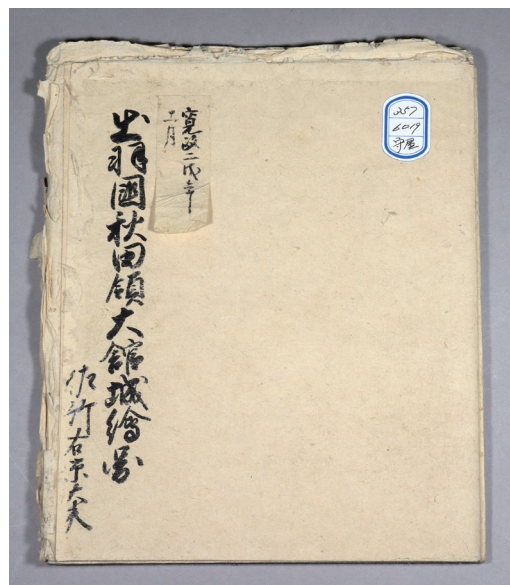 257
6019
守屋
寛政二戌年
三月
出羽國秋田領大舘城繪圖
佐竹右京大夫